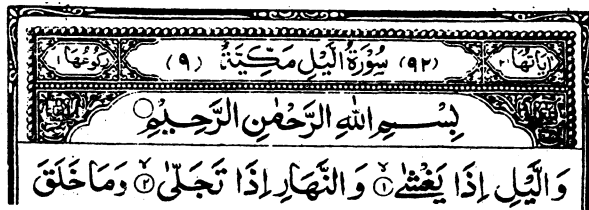 اٰيَاتُهَا ٢١ (٩٢) سُوْرَةُ الَّيْلِ مَكِّيَّةٌ (٩) رُكُوْعُهَا ١
بِسْمِ اللهِ الرَّحْمٰنِ الرَّحِيْمِ
وَالَّيْلِ اِذَا يَغْشٰى ۙ١ وَالنَّهَارِ اِذَا تَجَلّٰى ۙ٢ وَمَا خَلَقَ